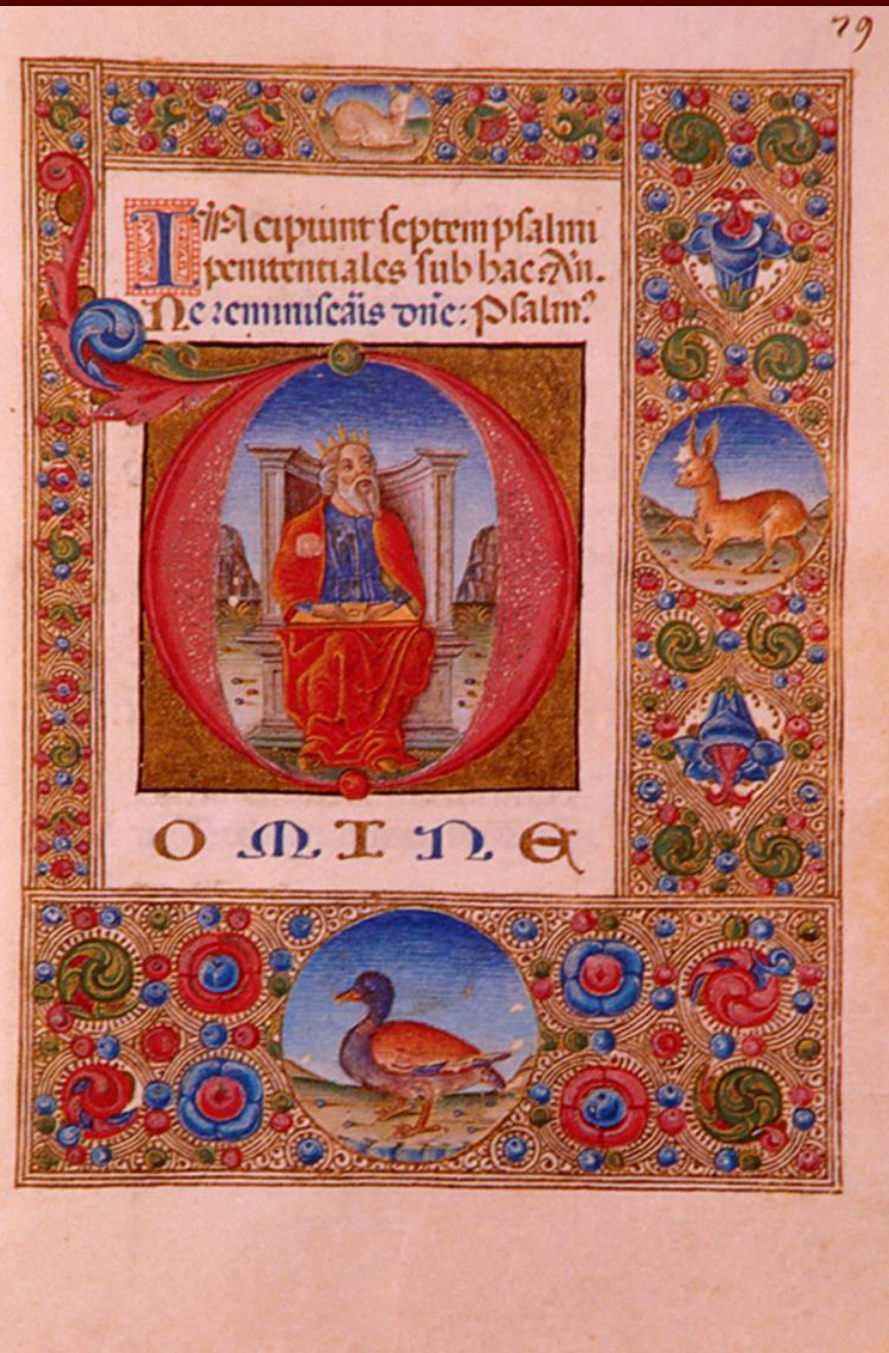 79
Incipiunt septem psalmi
penitentiales sub hac Añ.
Ne reminiscãis dñe: Psalm᾿
D
OMINE